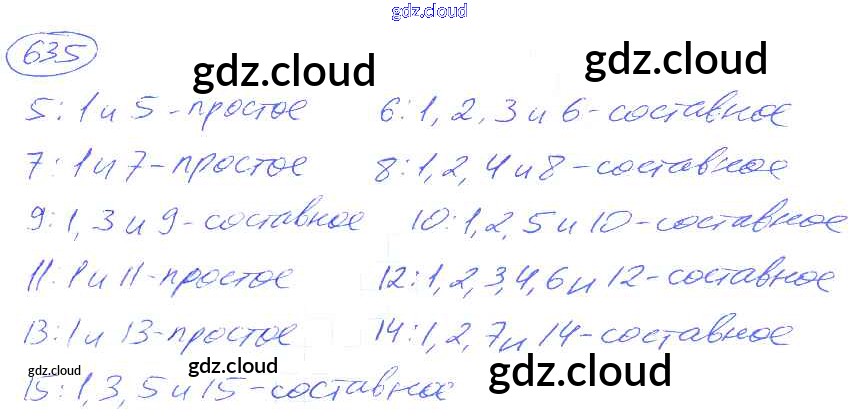 gdz.cloud
635
gdz.cloud gdz.cloud
5: 1 и 5 - простое 6: 1, 2, 3 и 6 - составное
7: 1 и 7 - простое 8: 1, 2, 4 и 8 - составное
9: 1, 3 и 9 - составное 10: 1, 2, 5 и 10 - составное
11: 1 и 11 - простое 12: 1, 2, 3, 4, 6 и 12 - составное
13: 1 и 13 - простое 14: 1, 2, 7 и 14 - составное
gdz.cloud gdz.cloud gdz.cloud
15: 1, 3, 5 и 15 - составное